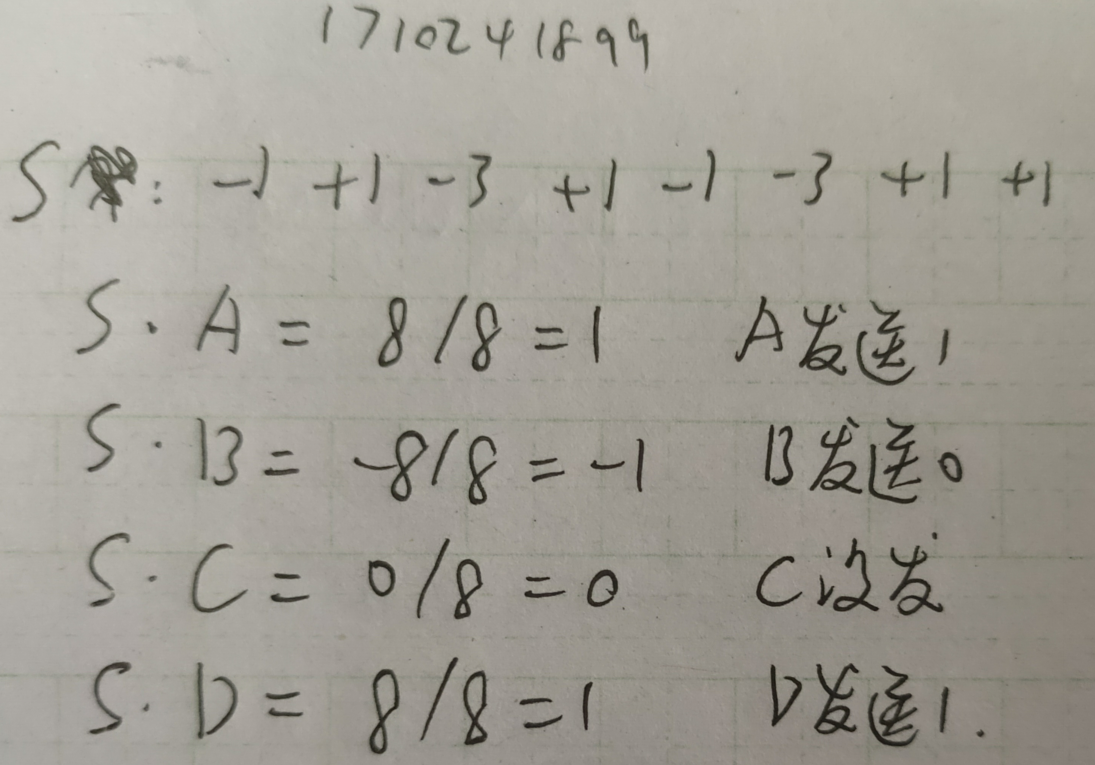 1710241899
S: -1 +1 -3 +1 -1 -3 +1 +1
S·A= 8/8=1 A发送1
S·B= -8/8=-1 B发送0
S·C= 0/8=0 C没发
S·D= 8/8=1 D发送1.